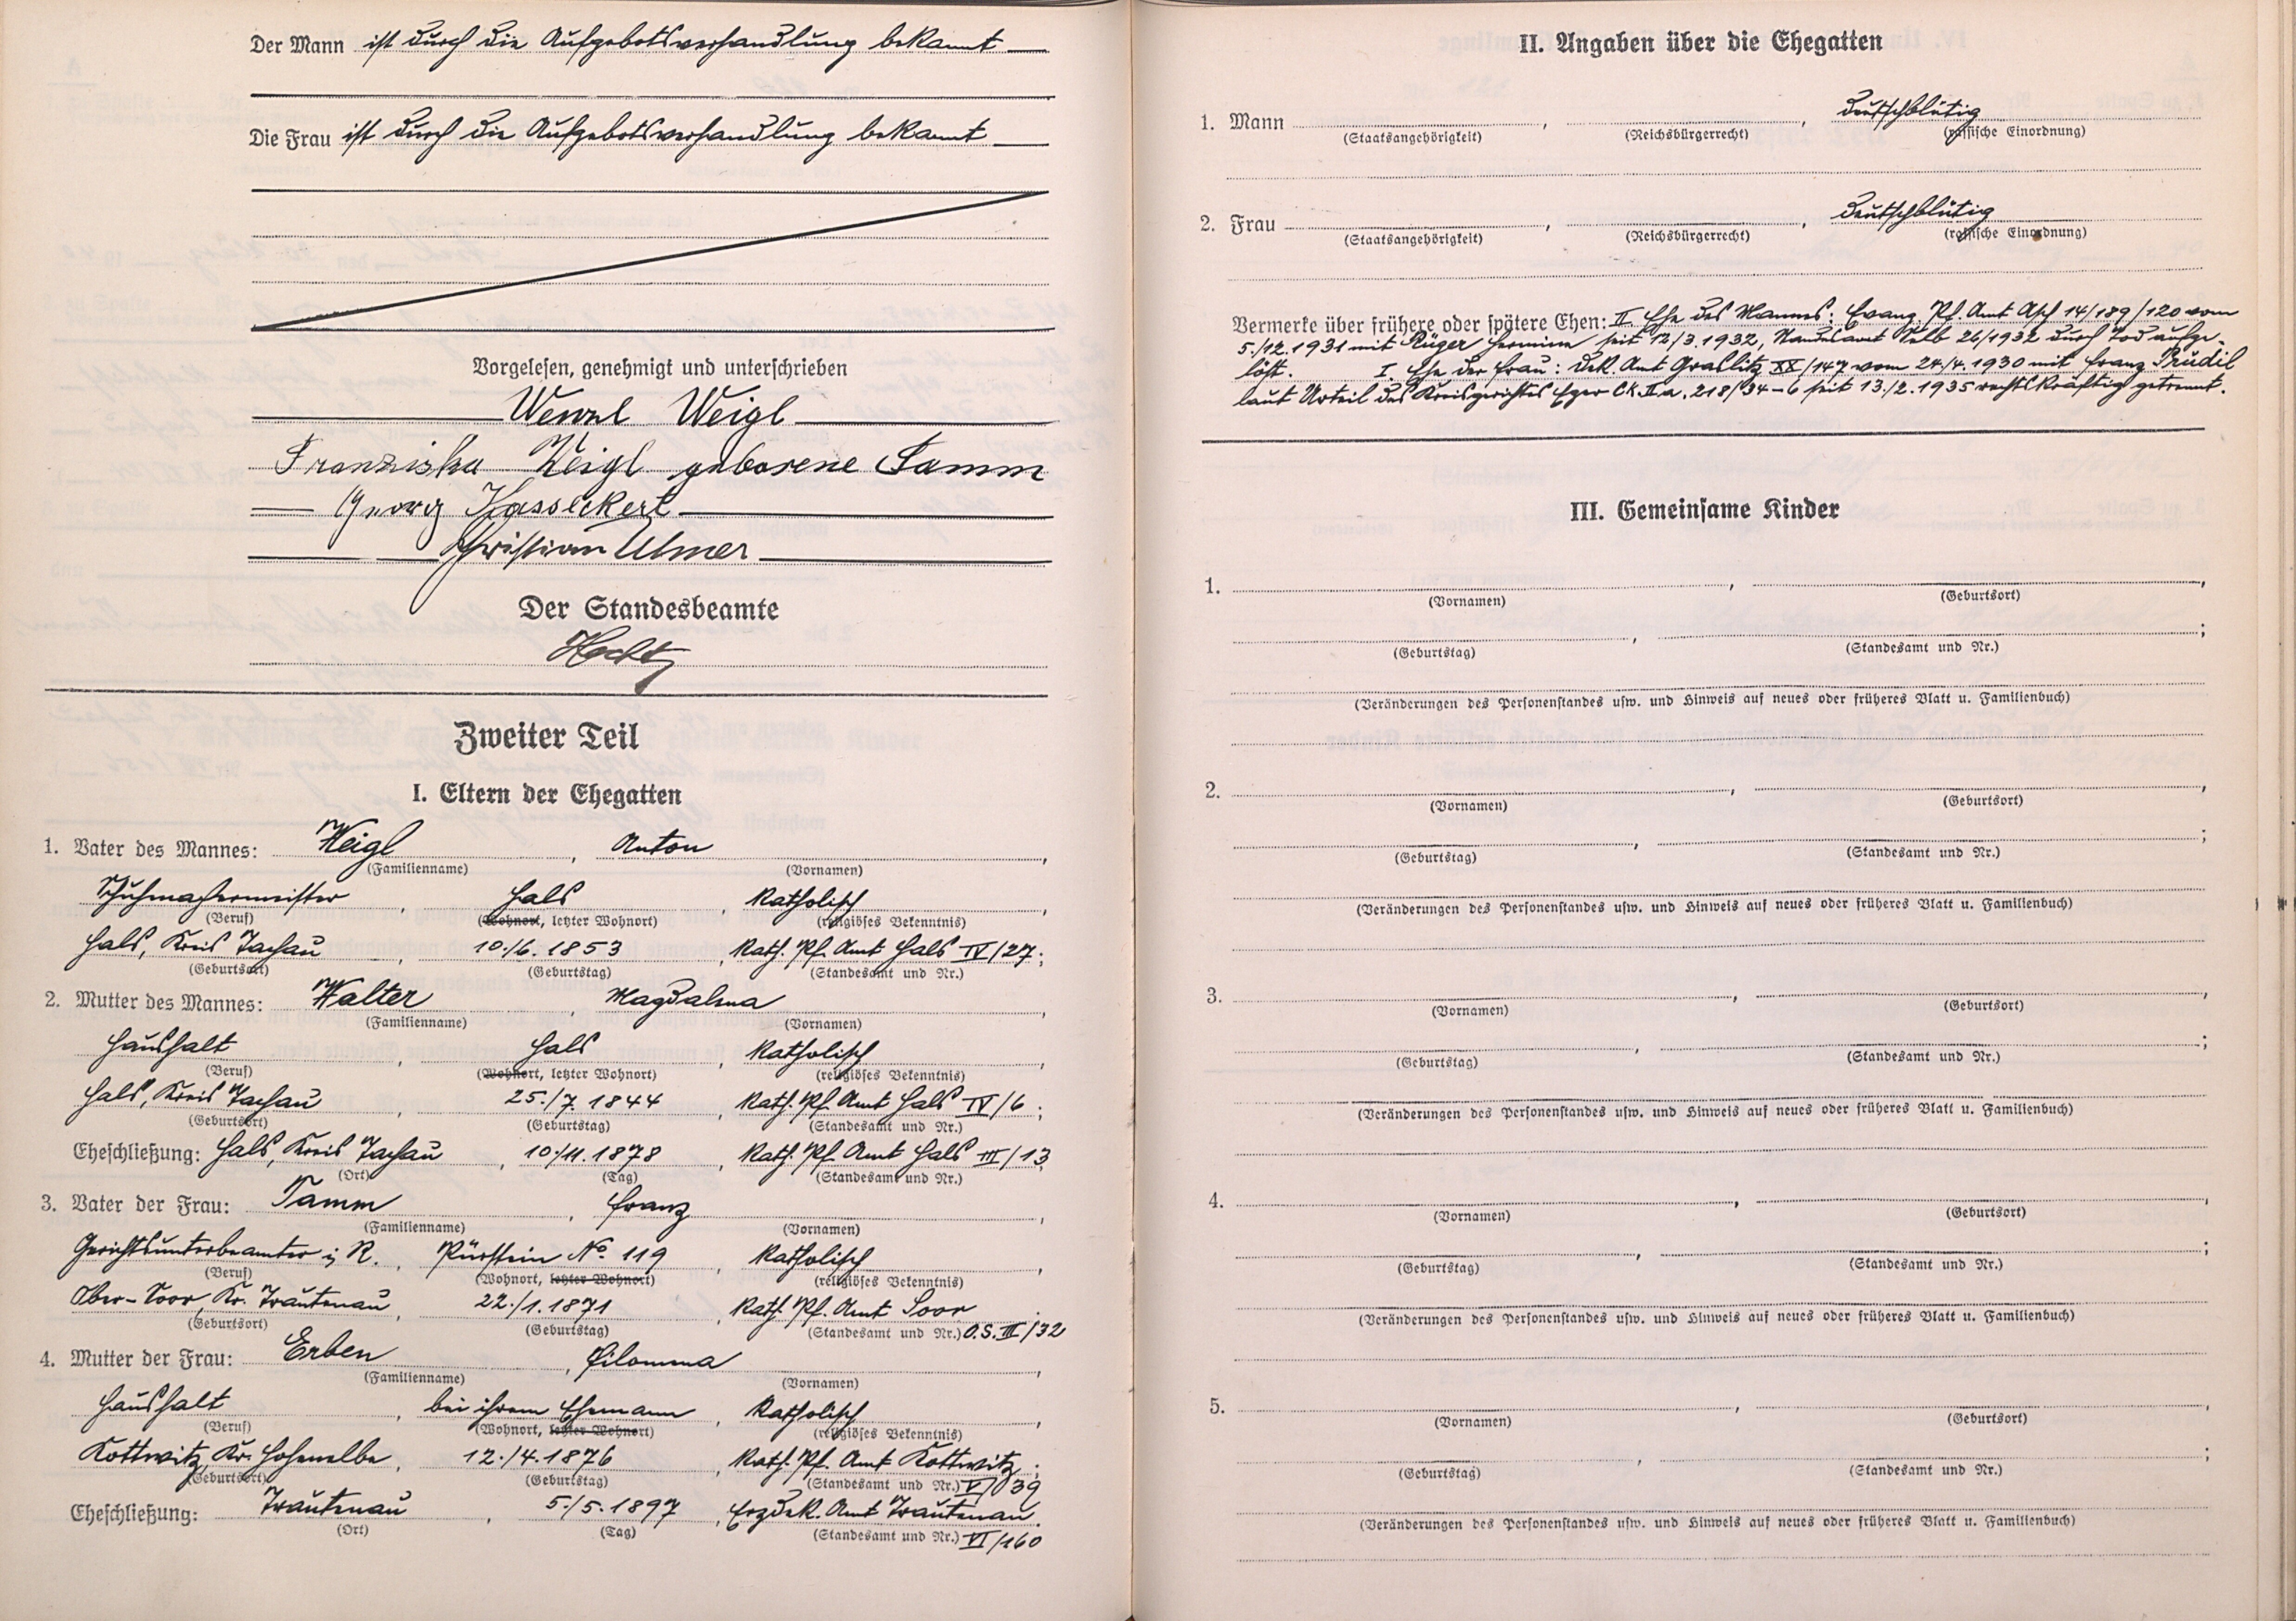 Der Mann ist durch die Aufgebotsverhandlung bekannt
Die Frau ist durch die Aufgebotsverhandlung bekannt
Vorgelesen, genehmigt und unterschrieben
Wenzl Weigl
Franziska Weigl geborene Tamm
Georg Hasseckert
Christian Ulmer
Der Standesbeamte
Zweiter Teil
I. Eltern der Ehegatten
1. Vater des Mannes: Weigl, Anton,
(Familienname) (Vornamen)
Schuhmachermeister, Hals, Katholisch,
(Beruf) (Wohnort, letzter Wohnort) (religiöses Bekenntnis)
Hals, Kreis Tachau, 10./6. 1853, Kath. Pf. Amt Hals IV/27;
(Geburtsort) (Geburtstag) (Standesamt und Nr.)
2. Mutter des Mannes: Walter, Magdalena,
(Familienname) (Vornamen)
Haushalt, Hals, Katholisch,
(Beruf) (Wohnort, letzter Wohnort) (religiöses Bekenntnis)
Hals, Kreis Tachau, 25./7. 1844, Kath. Pf. Amt Hals IV/6;
(Geburtsort) (Geburtstag) (Standesamt und Nr.)
Eheschließung: Hals, Kreis Tachau, 10./11. 1878, Kath. Pf. Amt Hals III/13.
(Ort) (Tag) (Standesamt und Nr.)
3. Vater der Frau: Tamm, Franz,
(Familienname) (Vornamen)
Gerichtsunterbeamter i. R., Pürstein No. 119, Katholisch,
(Beruf) (Wohnort, letzter Wohnort) (religiöses Bekenntnis)
Ober-Soor, Kr. Trautenau, 22./1. 1871, Kath. Pf. Amt Soor
(Geburtsort) (Geburtstag) (Standesamt und Nr.) O.S. III/32
4. Mutter der Frau: Erben, Filomena,
(Familienname) (Vornamen)
Haushalt, bei ihrem Ehemann, Katholisch,
(Beruf) (Wohnort, letzter Wohnort) (religiöses Bekenntnis)
Kottwitz, Kr. Hohenelbe, 12./4. 1876, Kath. Pf. Amt Kottwitz;
(Geburtsort) (Geburtstag) (Standesamt und Nr.) V/39
Eheschließung: Trautenau, 5./5. 1897, Erzdek. Amt Trautenau.
(Ort) (Tag) (Standesamt und Nr.) VI/160
II. Angaben über die Ehegatten
1. Mann , , deutschblütig
(Staatsangehörigkeit) (Reichsbürgerrecht) (rassische Einordnung)
2. Frau , , deutschblütig
(Staatsangehörigkeit) (Reichsbürgerrecht) (rassische Einordnung)
Vermerke über frühere oder spätere Ehen: II. Ehe des Mannes: Evang. Pf. Amt Asch 14/189/120 vom
5./12. 1931 mit Rüger Hermine seit 12/3. 1932, Standesamt Selb 26/1932 durch Tod aufge-
löst. I. Ehe der Frau: Dek. Amt Graslitz XX/147 vom 24/4. 1930 mit Franz Prudil
laut Urteil des Kreisgerichtes Eger Ck. IIa. 218/34-6 seit 13./2. 1935 rechtskräftig getrennt.
III. Gemeinsame Kinder
1. , ,
(Vornamen) (Geburtsort)
, ;
(Geburtstag) (Standesamt und Nr.)
(Veränderungen des Personenstandes usw. und Hinweis auf neues oder früheres Blatt u. Familienbuch)
2. , ,
(Vornamen) (Geburtsort)
, ;
(Geburtstag) (Standesamt und Nr.)
(Veränderungen des Personenstandes usw. und Hinweis auf neues oder früheres Blatt u. Familienbuch)
3. , ,
(Vornamen) (Geburtsort)
, ;
(Geburtstag) (Standesamt und Nr.)
(Veränderungen des Personenstandes usw. und Hinweis auf neues oder früheres Blatt u. Familienbuch)
4. , ,
(Vornamen) (Geburtsort)
, ;
(Geburtstag) (Standesamt und Nr.)
(Veränderungen des Personenstandes usw. und Hinweis auf neues oder früheres Blatt u. Familienbuch)
5. , ,
(Vornamen) (Geburtsort)
, ;
(Geburtstag) (Standesamt und Nr.)
(Veränderungen des Personenstandes usw. und Hinweis auf neues oder früheres Blatt u. Familienbuch)